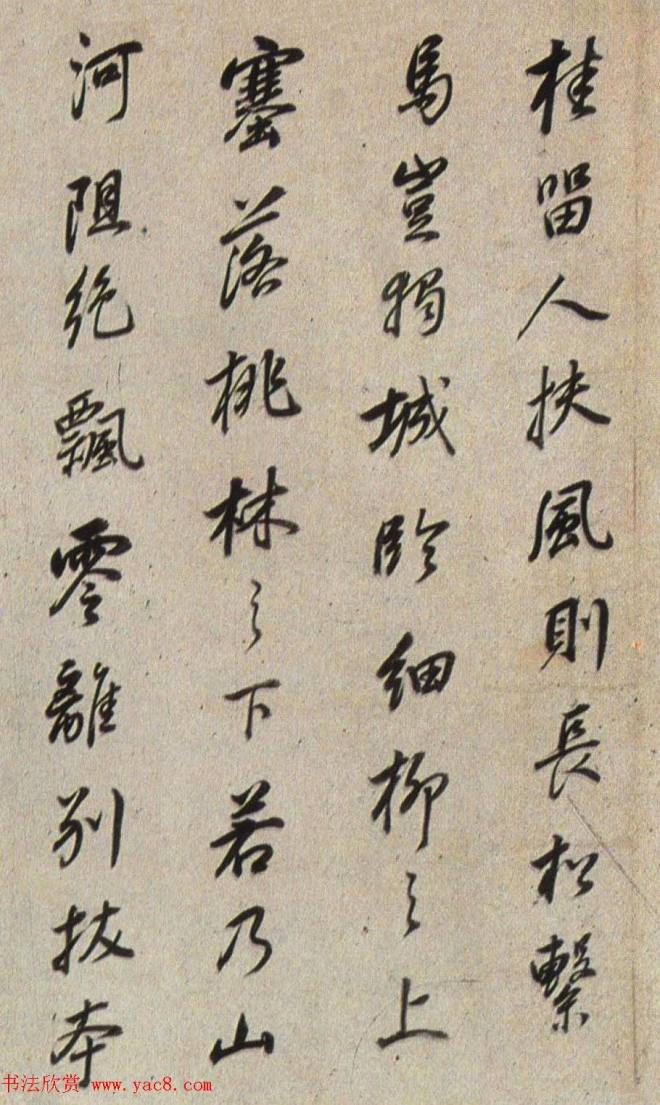 桂留人扶風則長松繫
馬豈獨城臨細柳之上
塞落桃林之下若乃山
河阻絶飄零離別拔本
书法欣赏 www.yac8.com